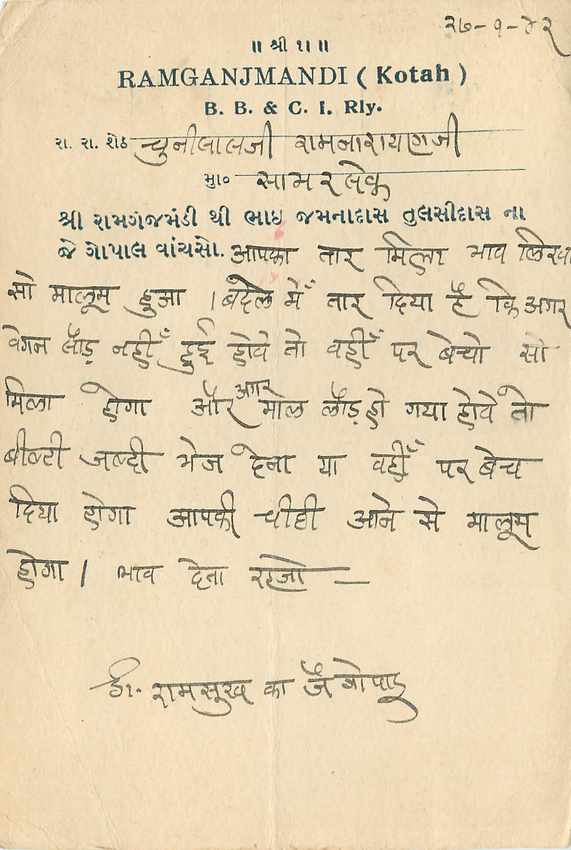 २७-१-४२
॥ श्री १॥ ॥
RAMGANJMANDI ( Kotah )
B. B. & C. I. Rly.
રા. રા. શેઠ चुनीलालजी रामनारायणजी
મુા૦ सामरलेक
શ્રી રામગંજમંડી થી ભાઇ જમનાદાસ તુલસીદાસ ના
જે ગોપાલ વાંચસો. आपका तार मिला भाव लिखा
सो मालूम हुआ । बदले में तार दिया है कि अगर
वेगन लौड़ नहीं हुई होवे तो वहीं पर बेचो सो
मिला होगा और अगर माल लौड़ हो गया होवे तो
बील्टी जल्दी भेज देना या वहीं पर बेच
दिया होगा आपकी चीठी आने से मालूम
होगा । भाव देना रहजो —
द॰ रामसुख का जै गोपाल